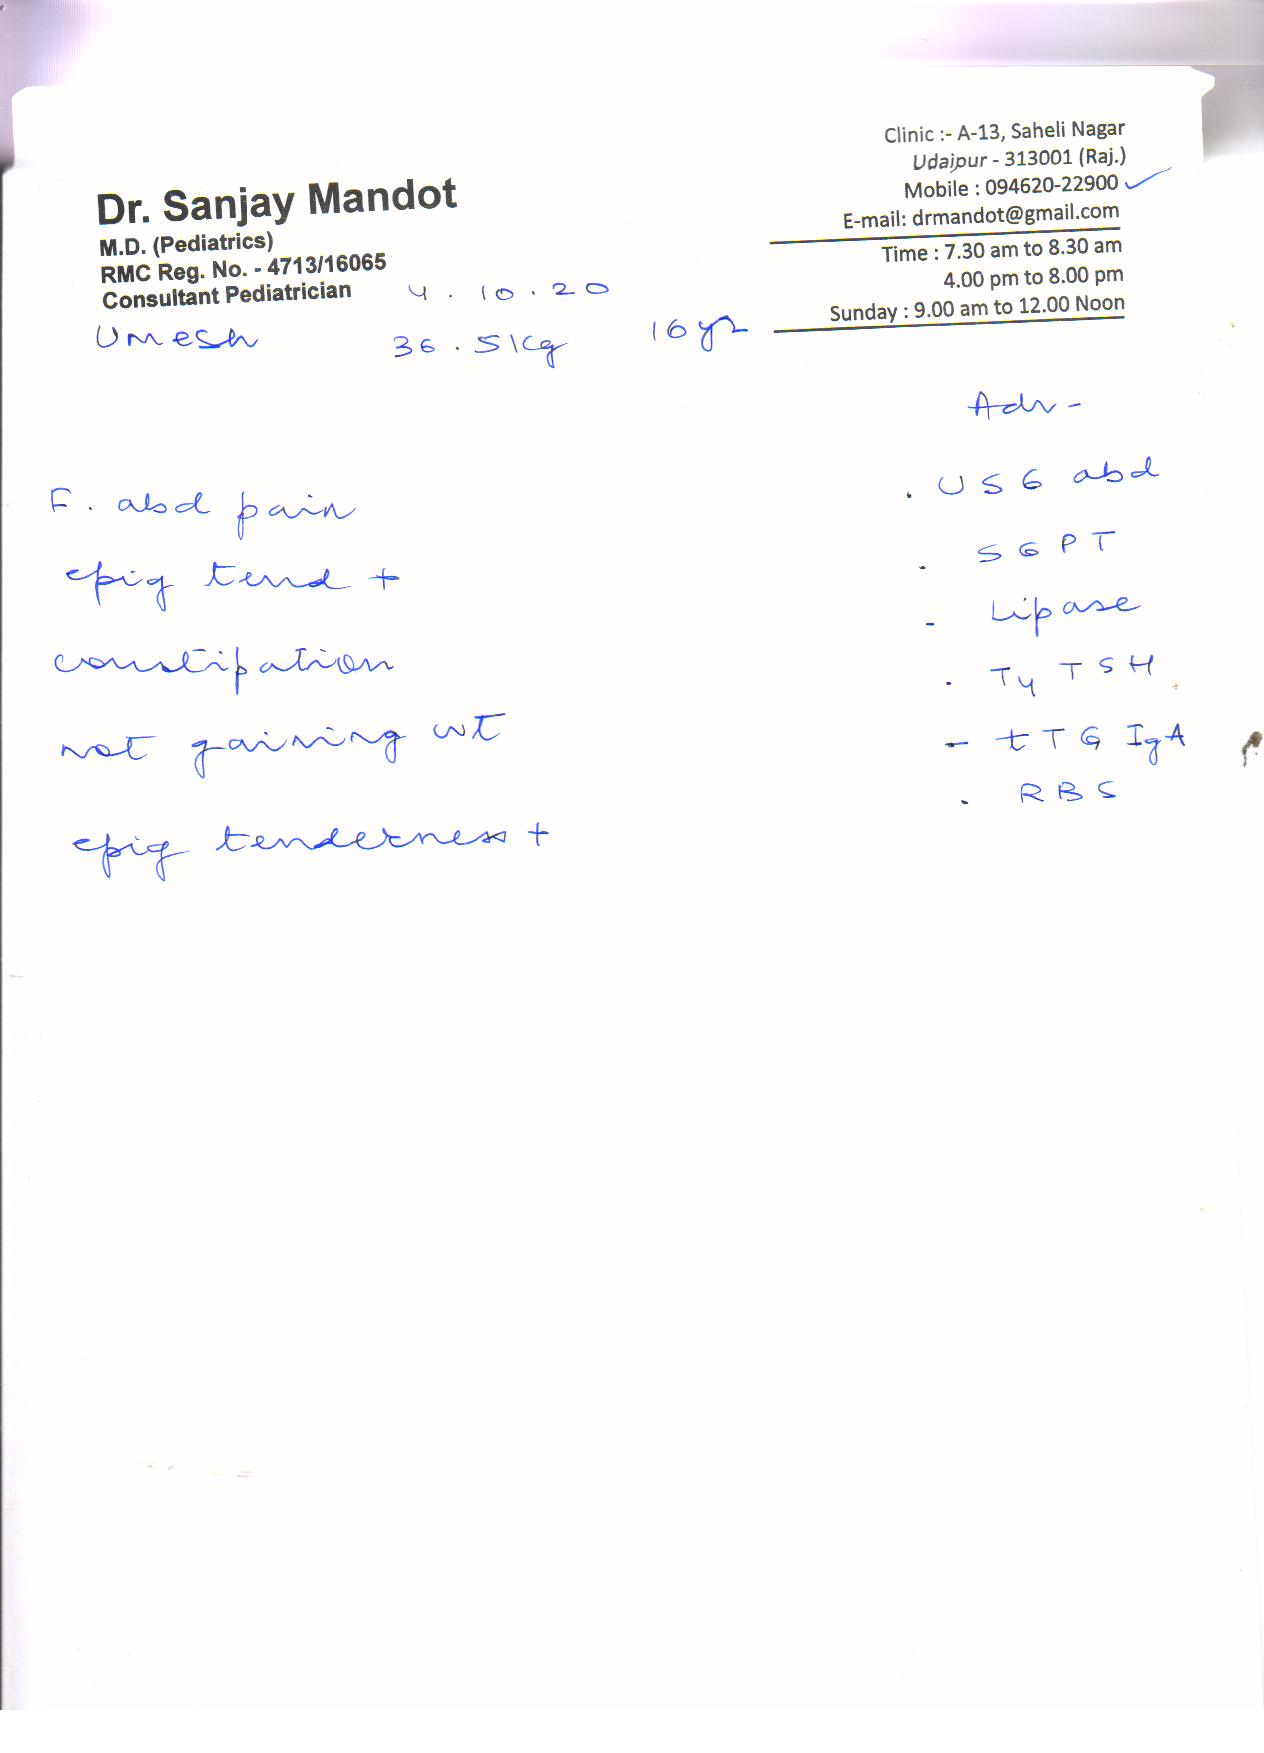 Clinic :- A-13, Saheli Nagar
Udaipur - 313001 (Raj.)
Mobile : 094620-22900
E-mail: drmandot@gmail.com
Time : 7.30 am to 8.30 am
4.00 pm to 8.00 pm
Sunday : 9.00 am to 12.00 Noon
Dr. Sanjay Mandot
M.D. (Pediatrics)
RMC Reg. No. - 4713/16065
Consultant Pediatrician 4.10.20
Umesh 36.5kg 16yr
F. abd pain
epig tend +
constipation
not gaining wt
epig tenderness +
Adv -
. USG abd
. SGPT
- Lipase
. T4 TSH
- tTG IgA
. RBS